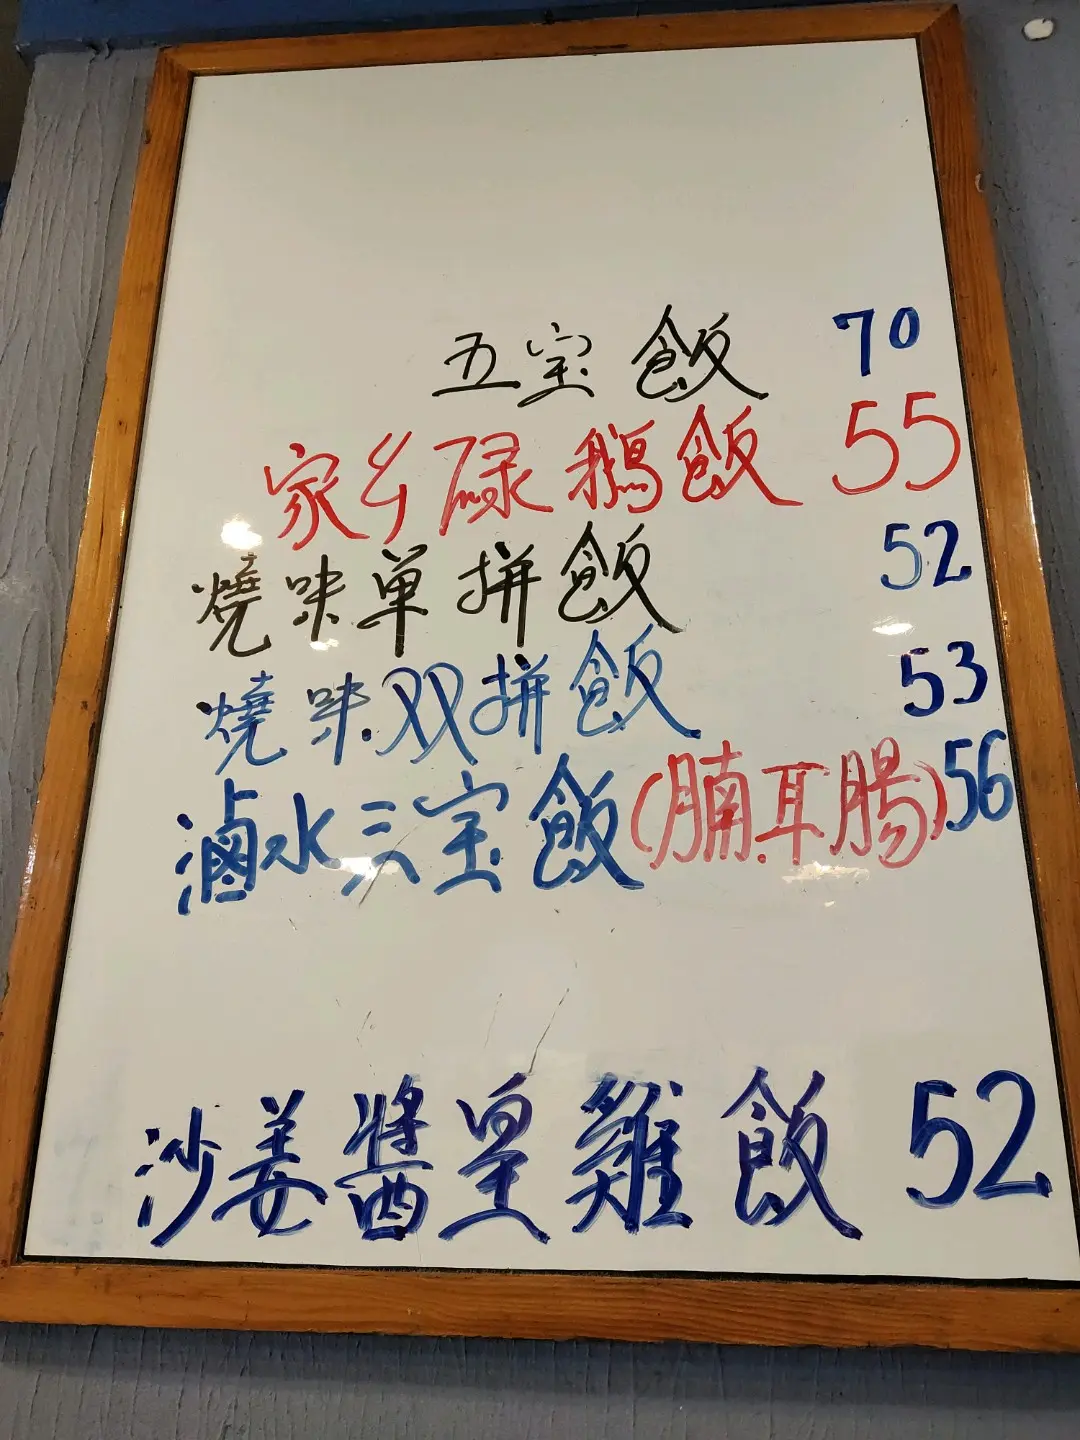 五宝飯 70
家乡碌鵝飯 55
燒味单拼飯 52
燒味双拼飯 53
滷水三宝飯(腩耳腸) 56
沙姜醬皇雞飯 52